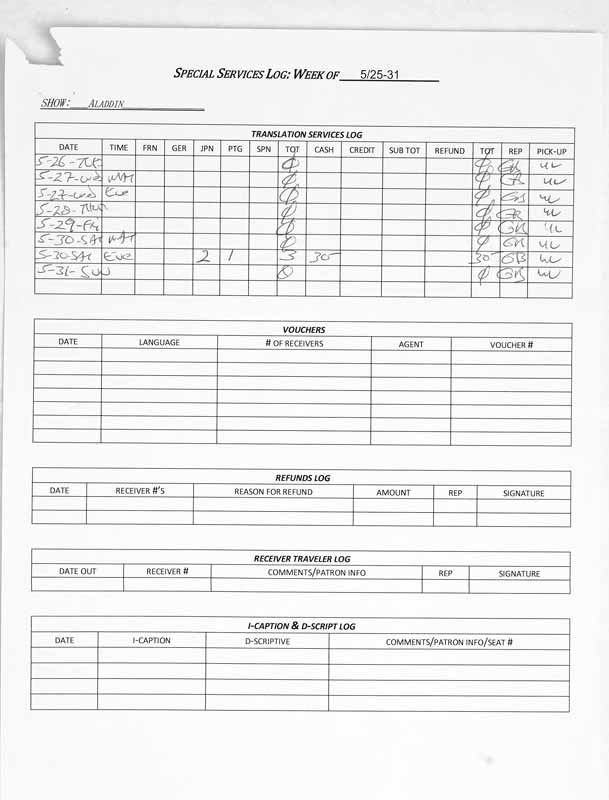 SPECIAL SERVICES LOG: WEEK OF 5/25-31
SHOW: ALADDIN
TRANSLATION SERVICES LOG
DATE TIME FRN GER JPN PTG SPN TOT CASH CREDIT SUB TOT REFUND TOT REP PICK-UP
5-26-TUE Ø Ø GB
5-27-Wed MAT Ø Ø GB
5-27-Wed Eve Ø Ø GB
5-28-Thur Ø Ø GB
5-29-Fri Ø Ø GB
5-30-SAt MAT Ø Ø GB
5-30-SAt Eve 2 1 3 30- 30- GB
5-31-SUN Ø Ø GB
VOUCHERS
DATE LANGUAGE # OF RECEIVERS AGENT VOUCHER #
REFUNDS LOG
DATE RECEIVER #'S REASON FOR REFUND AMOUNT REP SIGNATURE
RECEIVER TRAVELER LOG
DATE OUT RECEIVER # COMMENTS/PATRON INFO REP SIGNATURE
I-CAPTION & D-SCRIPT LOG
DATE I-CAPTION D-SCRIPTIVE COMMENTS/PATRON INFO/SEAT #